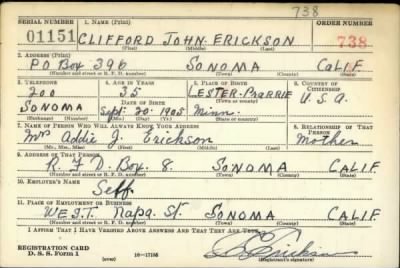 738
SERIAL NUMBER 1. NAME (Print) ORDER NUMBER
01151 CLIFFORD JOHN ERICKSON 738
(First) (Middle) (Last)
2. ADDRESS (Print)
PO Box 396 SONOMA CALIF.
(Number and street or R. F. D. number) (Town) (County) (State)
3. TELEPHONE 4. AGE IN YEARS 5. PLACE OF BIRTH 6. COUNTRY OF CITIZENSHIP
200 35 LESTER-PRARRIE U.S.A.
DATE OF BIRTH (Town or county)
SONOMA Sept. 20. 1905 Minn.
(Exchange) (Number) (Mo.) (Day) (Yr.) (State or country)
7. NAME OF PERSON WHO WILL ALWAYS KNOW YOUR ADDRESS 8. RELATIONSHIP OF THAT PERSON
Mrs Addie J. Erickson Mother
(Mr., Mrs., Miss) (First) (Middle) (Last)
9. ADDRESS OF THAT PERSON
R.F.D. Box. 8. SONOMA CALIF.
(Number and street or R. F. D. number) (Town) (County) (State)
10. EMPLOYER'S NAME
Self
11. PLACE OF EMPLOYMENT OR BUSINESS
WEST. Napa. St. SONOMA CALIF.
(Number and street or R. F. D. number) (Town) (County) (State)
I AFFIRM THAT I HAVE VERIFIED ABOVE ANSWERS AND THAT THEY ARE TRUE.
REGISTRATION CARD
D. S. S. Form 1 16-17105 (over) Erickson